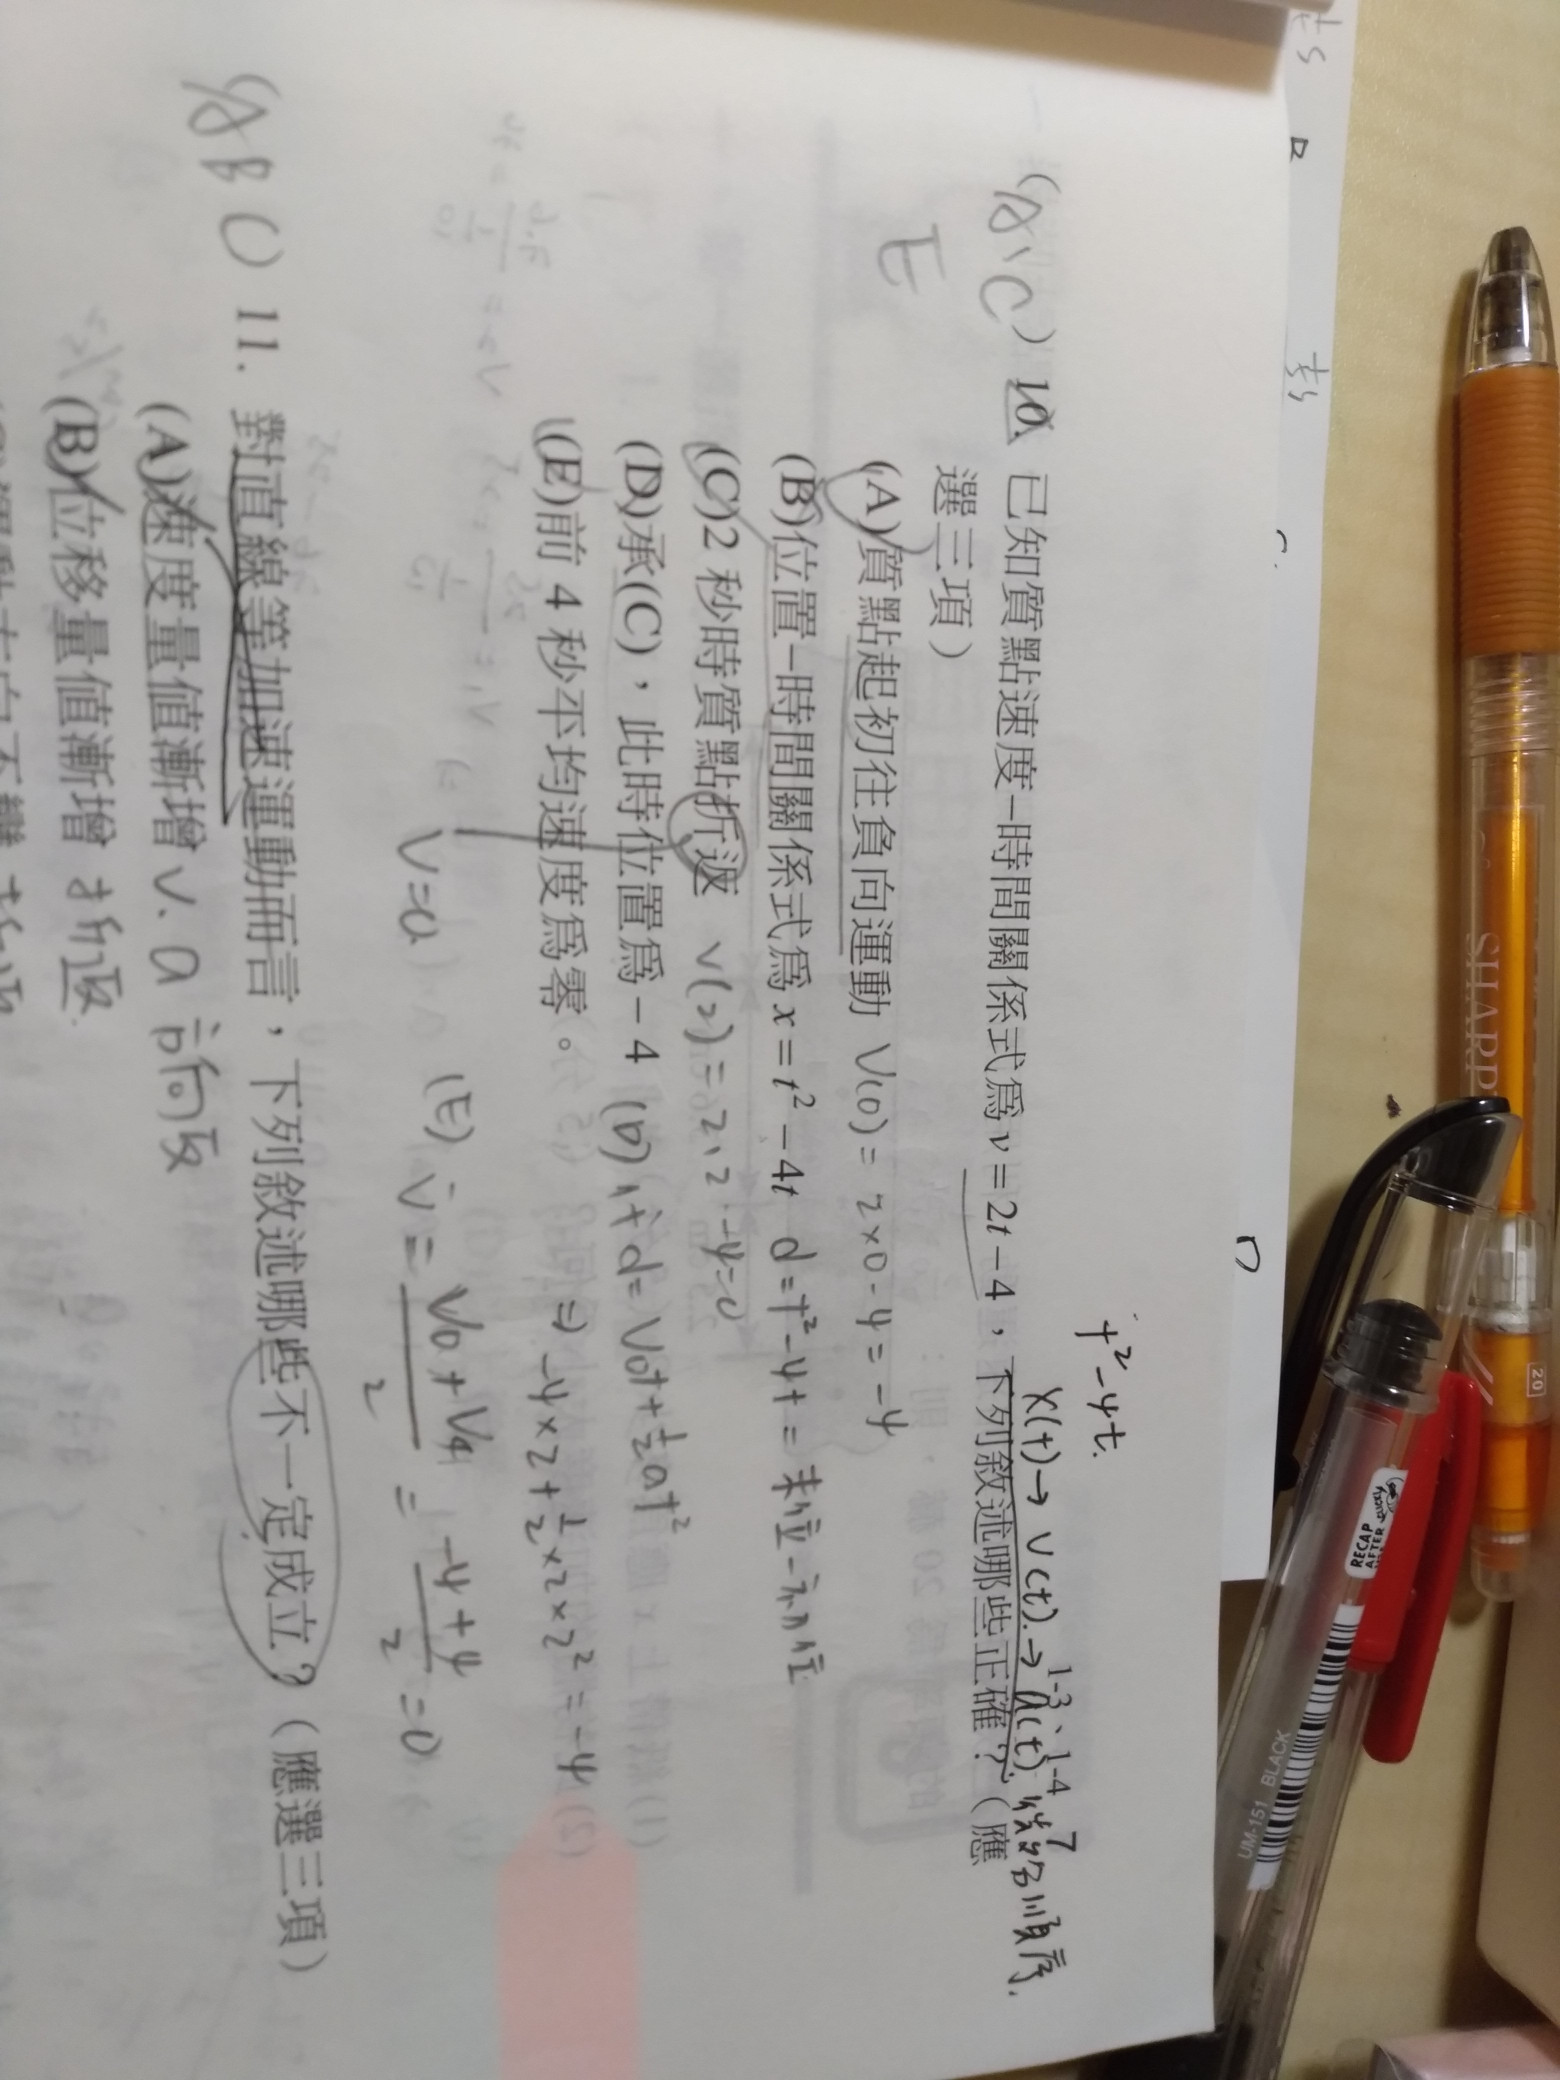 t²-4t.
x(t)→v(t).→a(t).微分順序.
1-3、1-4 7
(A、C
E
) 10. 已知質點速度－時間關係式為 v＝2t－4，下列敘述哪些正確？（應
選三項）
(A)質點起初往負向運動 V(0)=2×0-4=-4
(B)位置－時間關係式為 x＝t²－4t d=t²-4t=末位-初位
(C)2 秒時質點折返 v(2)=2、2-4=0
(D)承(C)，此時位置為－4 (D) d=V₀t+½at²
⇒-4×2+½×2×2²=-4
(E)前 4 秒平均速度為零。
V=0
(E) v=V₀+V₄/2=-4+4/2=0
AB ) 11. 對直線等加速運動而言，下列敘述哪些不一定成立？（應選三項）
(A)速度量值漸增 v.a 同
(B)位移量值漸增 折返
SHARP
20
RECAP
AFTER
UM-151 BLACK